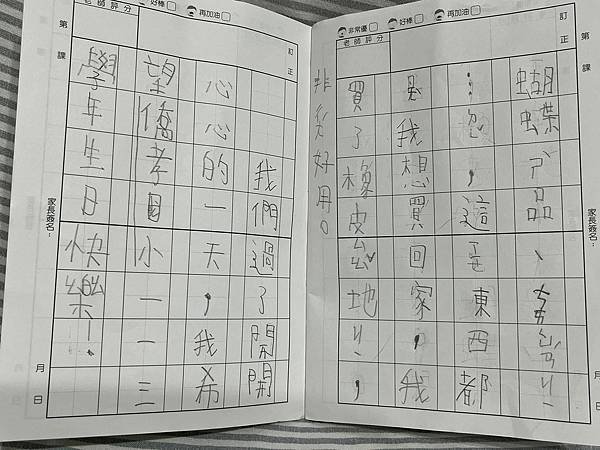 非常優 好棒 再加油
老師評分
訂正
第 課
家長簽名：
月 日
蝴蝶 品、
，這 東西都
是我想買回家，我
買了橡皮 地 ，
非 好用。
好棒 再加油
老師評分
訂正
第 課
家長簽名：
月 日
我們過了開開
心心的一天，我希
望僑孝國小一一三
學年生日快樂！